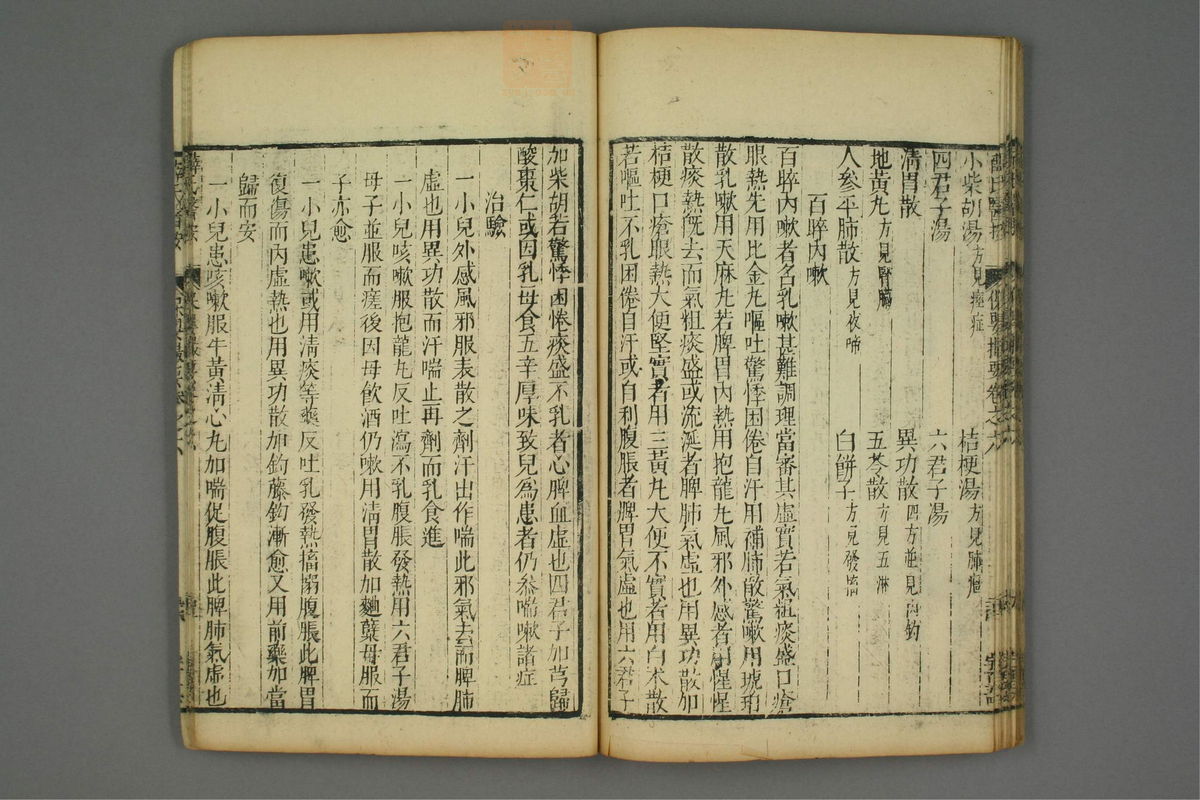 小柴胡湯方見痙症　桔梗湯方見肺癰
四君子湯　六君子湯
清胃散　異功散四方並見
地黃丸方見腎臟　五苓散方見五淋
人參平肺散方見夜啼　白餅子方見發搐
百晬內嗽
百晬內嗽者名乳嗽甚難調理當審其虛實若氣粗痰盛口瘡
眼熱先用比金丸嘔吐驚悸困倦自汗用補肺散驚嗽用琥珀
散乳嗽用天麻丸若脾胃內熱用抱龍丸風邪外感者用惺惺
散痰熱既去而氣粗痰盛或流涎者脾肺氣虛也用異功散加
桔梗口瘡眼熱大便堅實者用三黃丸大便不實者用白朮散
若嘔吐不乳困倦自汗或自利腹脹者脾胃氣虛也用六君子
加柴胡若驚悸困倦痰盛不乳者心脾血虛也四君子加芎歸
酸棗仁或因乳母食五辛厚味致兒為患者仍參喘嗽諸症
治驗
一小兒外感風邪服表散之劑汗出作喘此邪氣去而脾肺
虛也用異功散而汗喘止再劑而乳食進
一小兒咳嗽服抱龍丸反吐瀉不乳腹脹發熱用六君子湯
母子並服而瘥後因母飲酒仍嗽用清胃散加麯蘗母服而
子亦愈
一小兒患嗽或用清痰等藥反吐乳發熱搐搦腹脹此脾胃
復傷而內虛熱也用異功散加鈎藤鈎漸愈又用前藥加當
歸而安
一小兒患咳嗽服牛黃清心丸加喘促腹脹此脾肺氣虛也